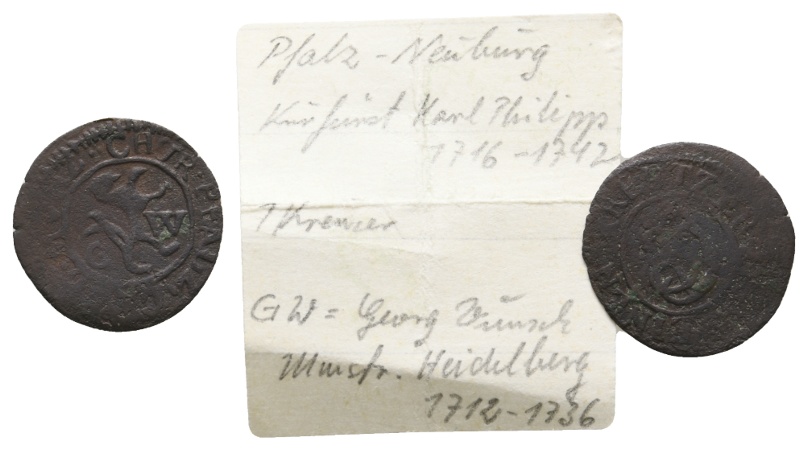 Pfalz - Neuburg
Kurfürst Karl Philipp
1716 - 1742
1 Kreuzer
GW = Georg Wunsch
Mmstr. Heidelberg
1712 - 1736
CHVRPFALZ
W